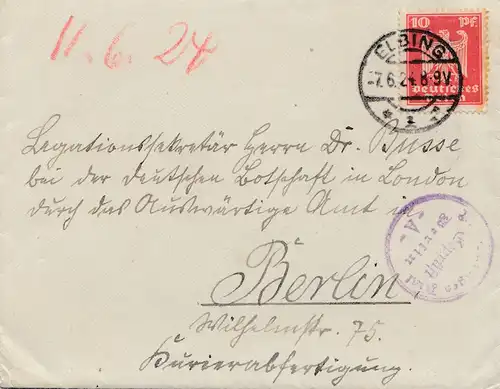 11.6.24
10 Pf.
Deutsches
ELBING
-7.6.24.8-9V.
* 1 f
Legationssekretär Herrn Dr. Busse
bei der Deutschen Botschaft in London
durch das Auswärtige Amt in
Berlin
Wilhelmstr. 75.
Kurierabfertigung.
-A-